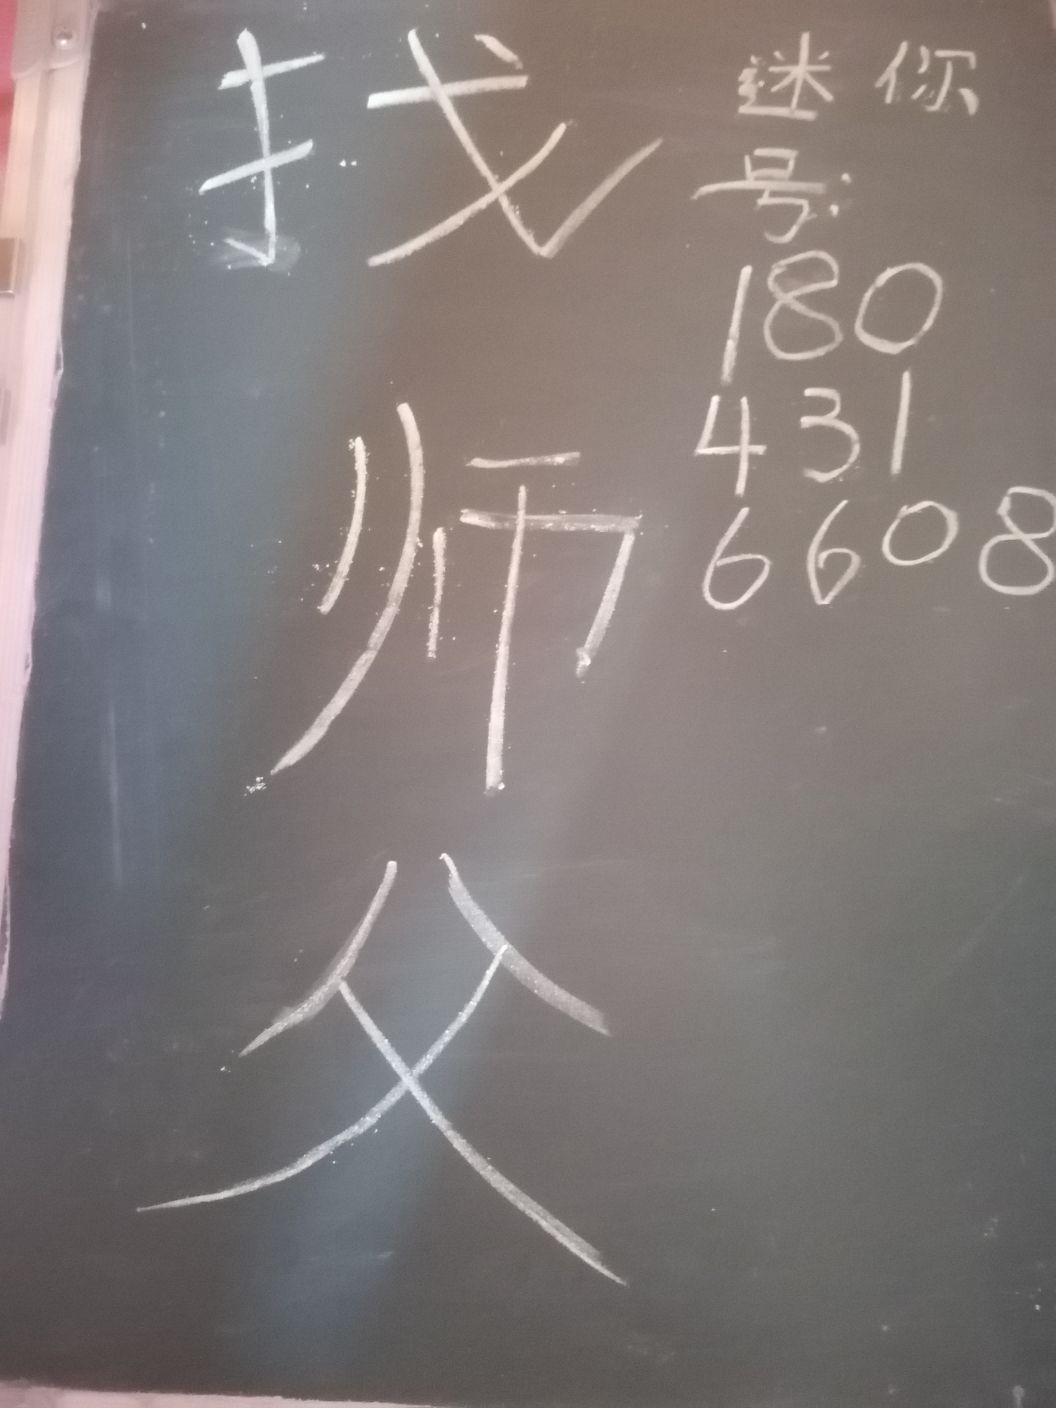 找
师
父
迷你
号:
180
431
6608